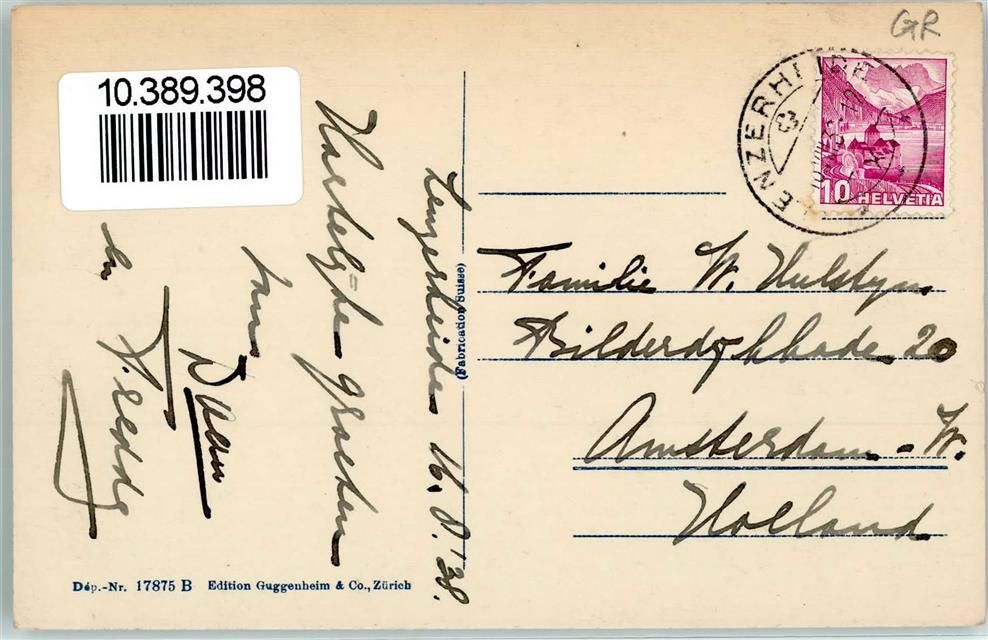 GR
10.389.398
LENZERHEIDE
10 HELVETIA
Lenzerheide 16.8.'38.
Hartelijke groeten
van
Daan
en
Freddy
(Fabrication Suisse)
Familie W. Hulstyn
Bilderdykkade 20
Amsterdam - W.
Holland
Dép.-Nr. 17875 B Edition Guggenheim & Co., Zürich